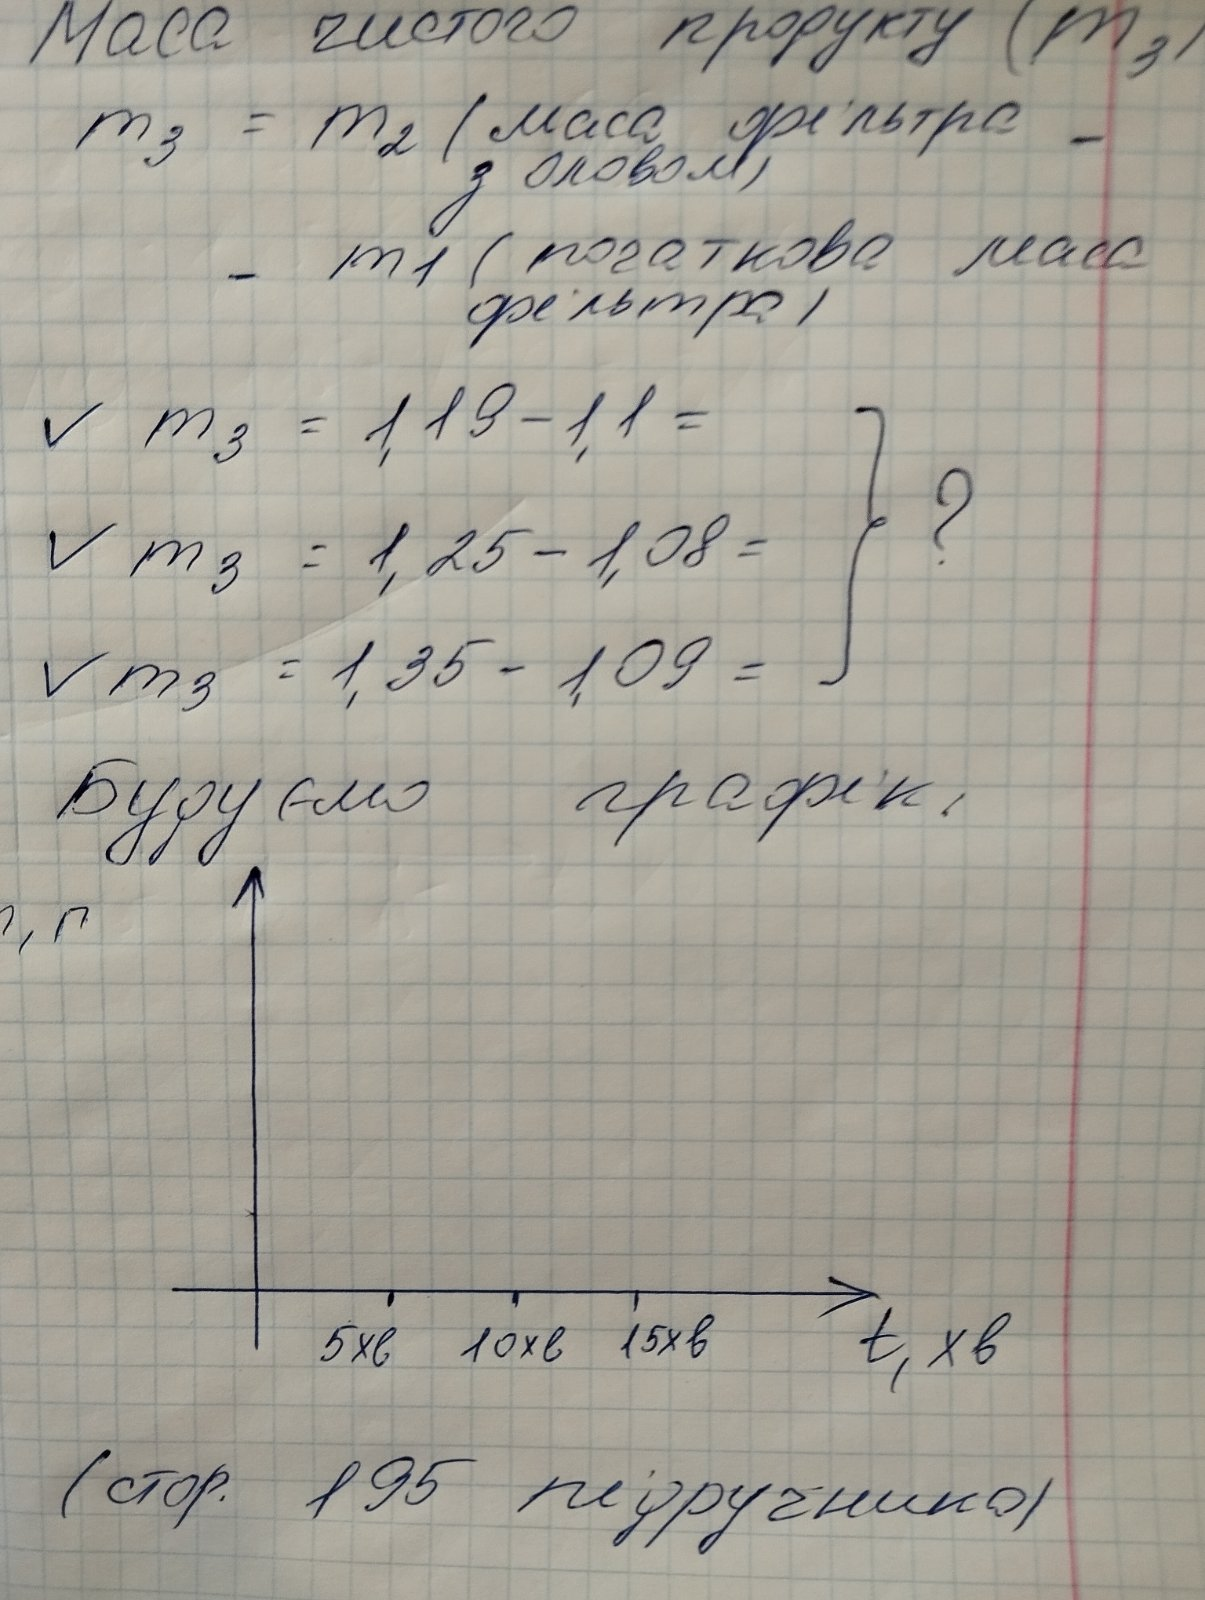 Маса чистого продукту (m3)
m3 = m2 (маса фільтра -
з оловом)
- m1 (початкова маса
фільтра)
✓ m3 = 1,19 - 1,1 =
✓ m3 = 1,25 - 1,08 =
✓ m3 = 1,35 - 1,09 =
} ?
Будуємо графік.
m, г
5хв 10хв 15хв t, хв
(стор. 195 підручника)